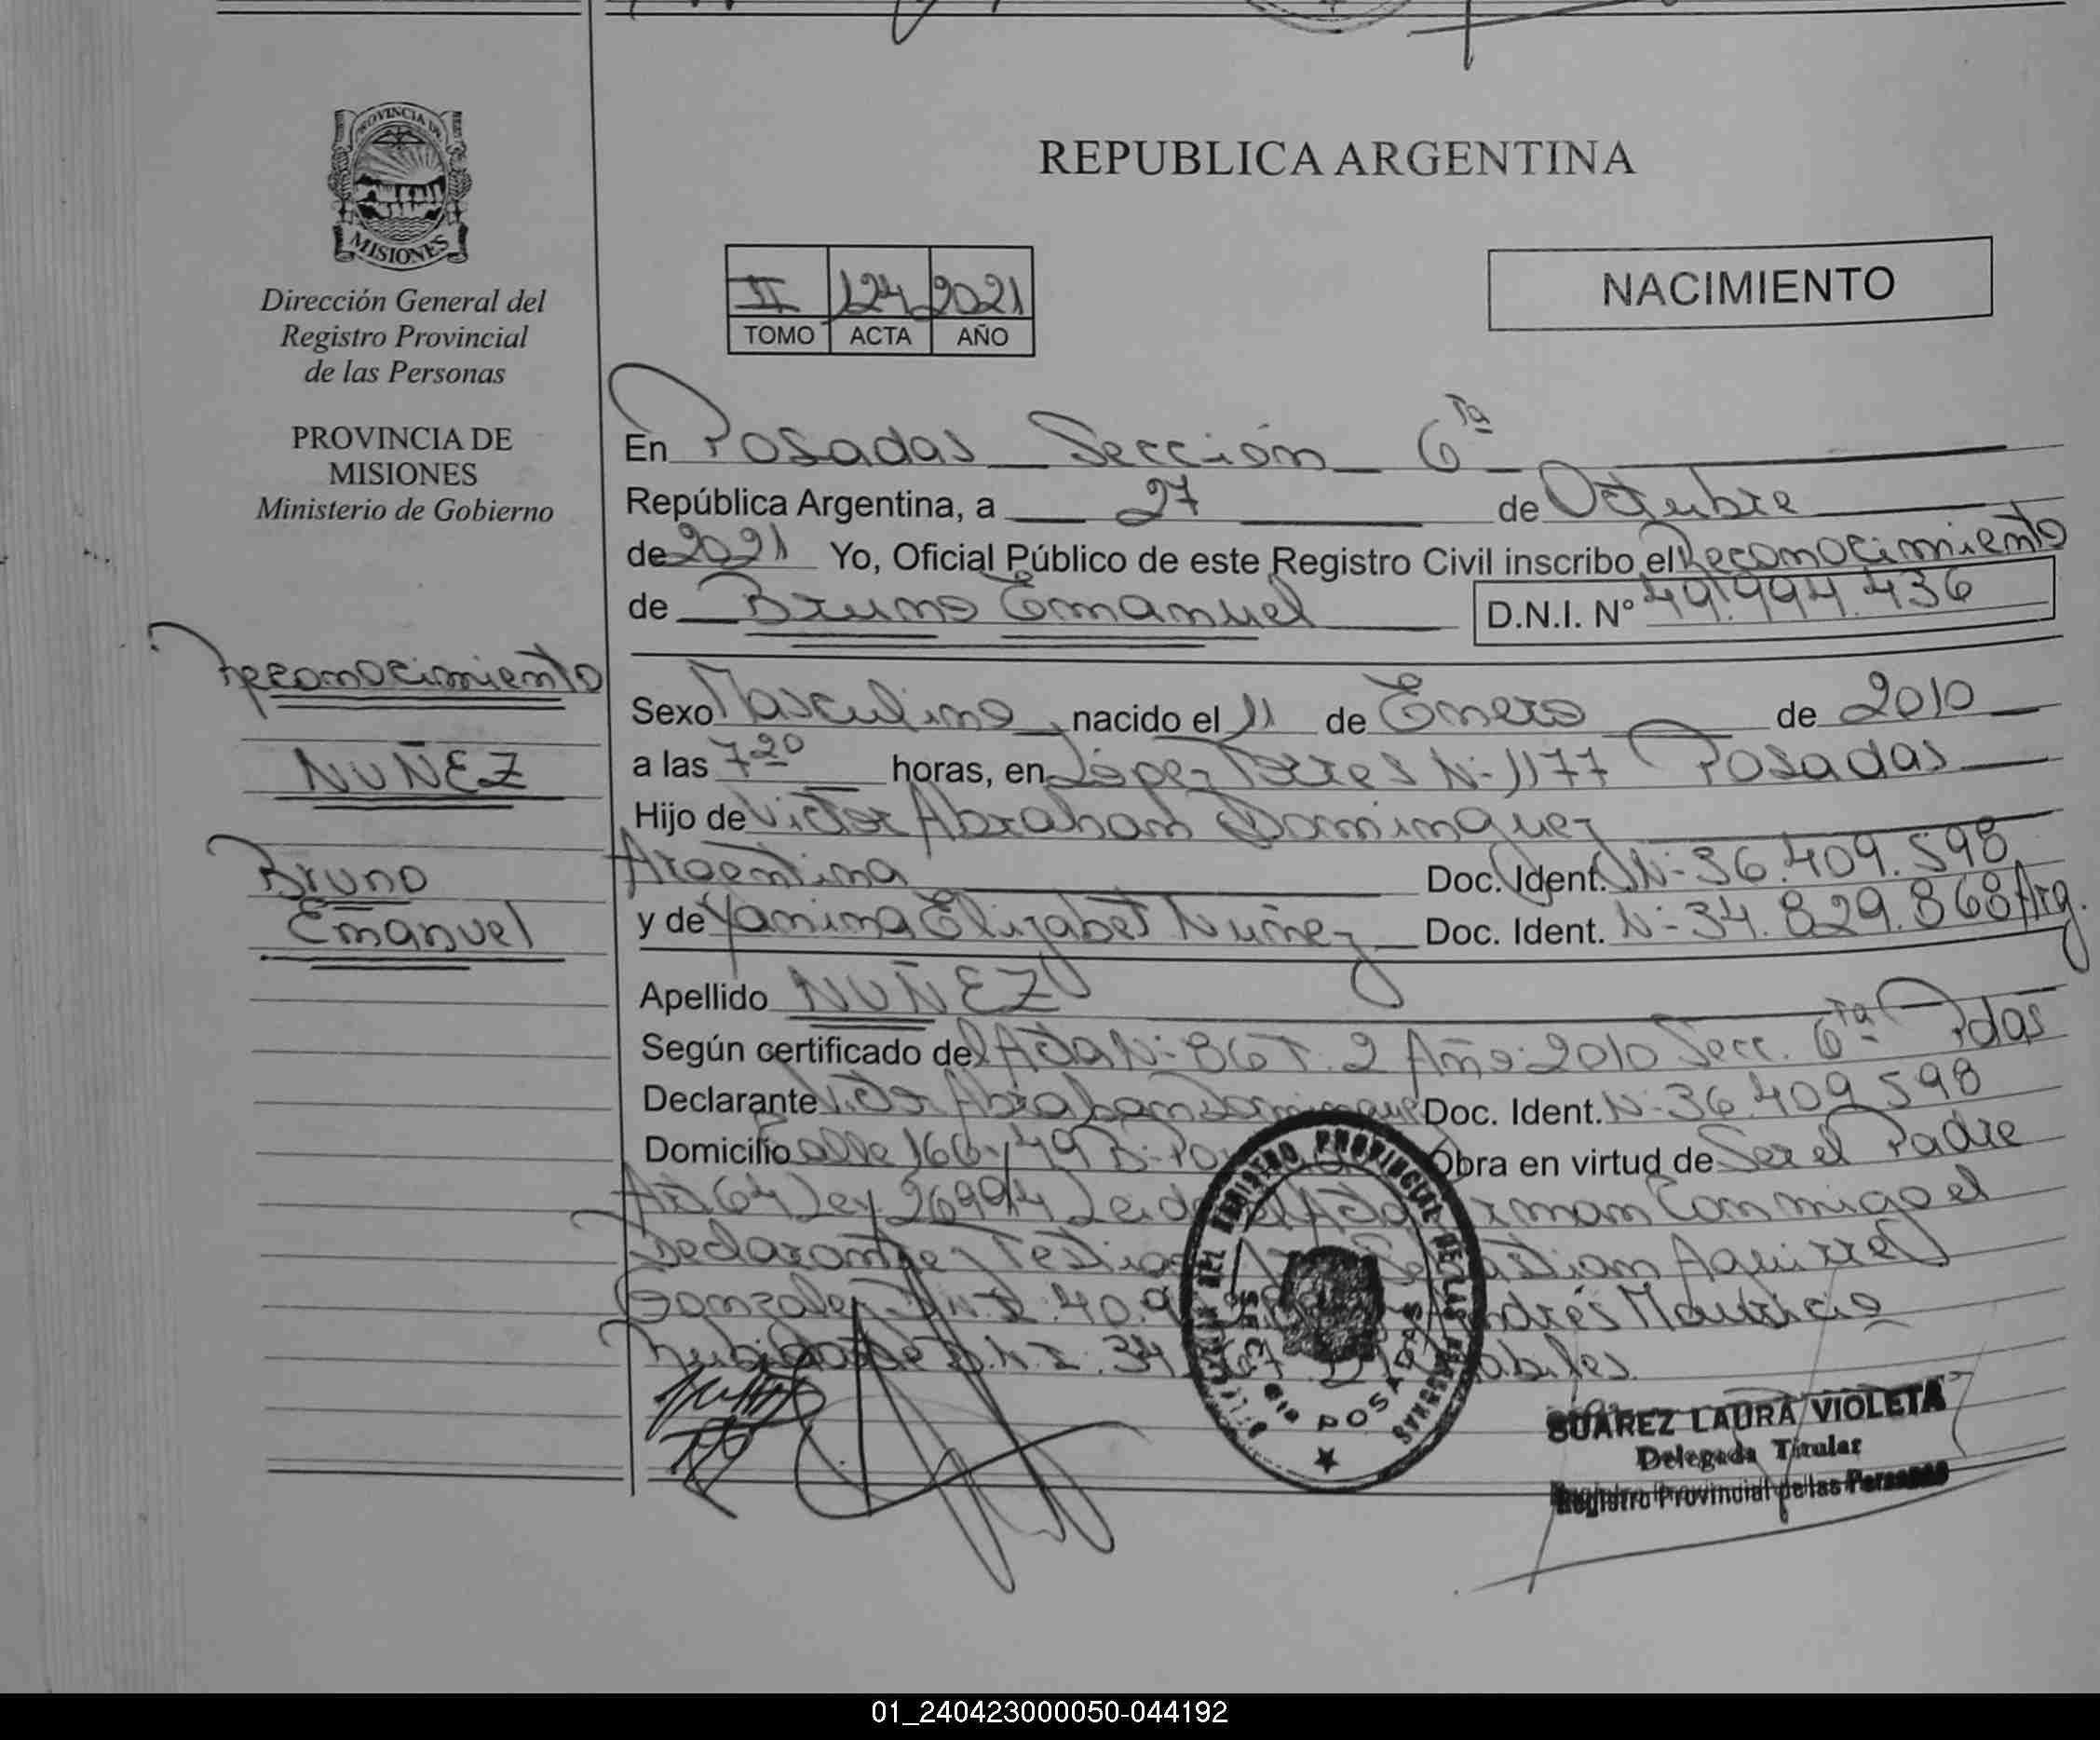 PROVINCIA DE
MISIONES
Dirección General del
Registro Provincial
de las Personas
PROVINCIA DE
MISIONES
Ministerio de Gobierno
Reconocimiento
NUÑEZ
Bruno
Emanuel
REPUBLICA ARGENTINA
II 124 2021
TOMO ACTA AÑO
NACIMIENTO
En Posadas Sección 6ta
República Argentina, a 27 de Octubre
de 2021 Yo, Oficial Público de este Registro Civil inscribo el Reconocimiento
de Bruno Emanuel D.N.I. Nº 49.994.436
Sexo Masculino nacido el 11 de Enero de 2010
a las 7 20 horas, en López Torres N- 1177 Posadas
Hijo de Victor Abraham Dominguez
Argentina Doc. Ident. N- 36.409.598
y de Yanina Elizabet Nuñez Doc. Ident. N- 34.829.868 Arg.
Apellido NUÑEZ
Según certificado del Acta N- 86 T. 2 Año 2010 Secc. 6ta Pdas
Declarante Victor Abraham Dominguez Doc. Ident. N- 36.409.598
Domicilio Calle 166 y 49 B- Obra en virtud de Ser el Padre
Art 64 Ley 26994 Leida el Acta Firman Conmigo el
Declarante y Testigos Sebastian Aguirre
Gonzalez D.N.I. 40.9 Andrés Mauricio
D.N.I. 34
REGISTRO PROVINCIAL DE LAS PERSONAS
SECC. 6ta POSADAS
SUAREZ LAURA VIOLETA
Delegada Titular
Registro Provincial de las Personas
01_240423000050-044192